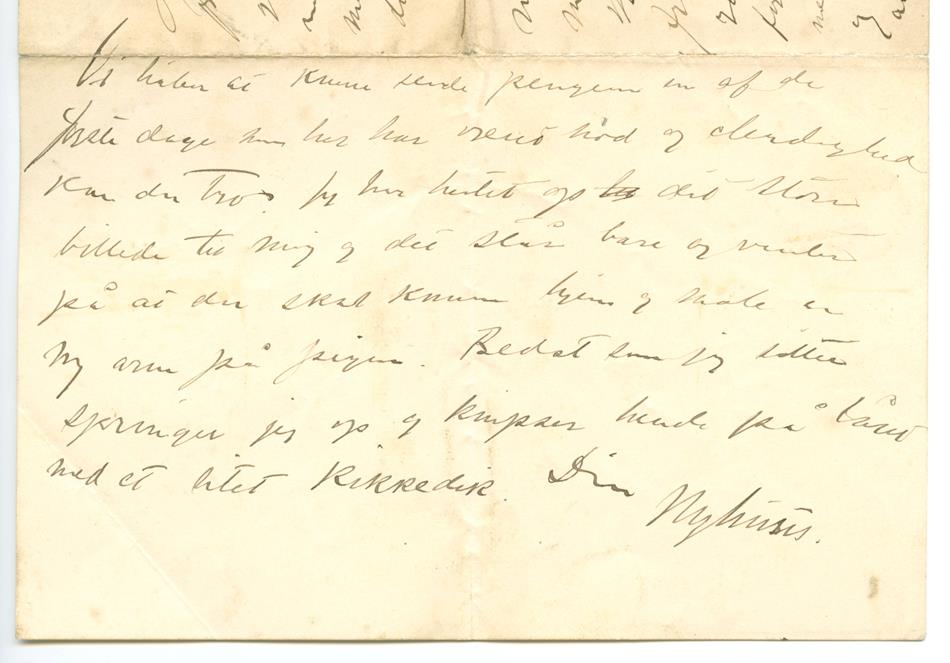 Vi håber at kunne sende pengene en af de
første dage men her har været nød og elendighed
kan du tro. Jeg har hentet op det store
billede til mig og det står bare og venter
på at du skal komme hjem og male en
ny arm på pigen. Bedst som jeg sitter
springer jeg op og knipser hende på låret
med et litet kikkedik. Din
Nyhuus.